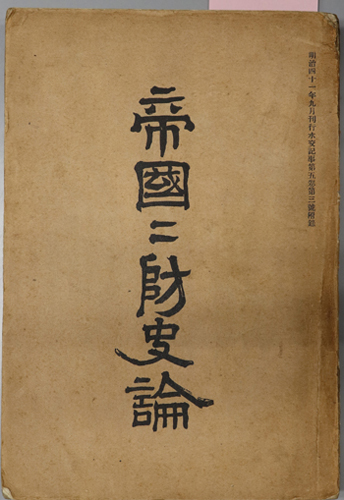 明治四十一年九月刊行水交記事第五卷第三號附錄
帝國〻防史論